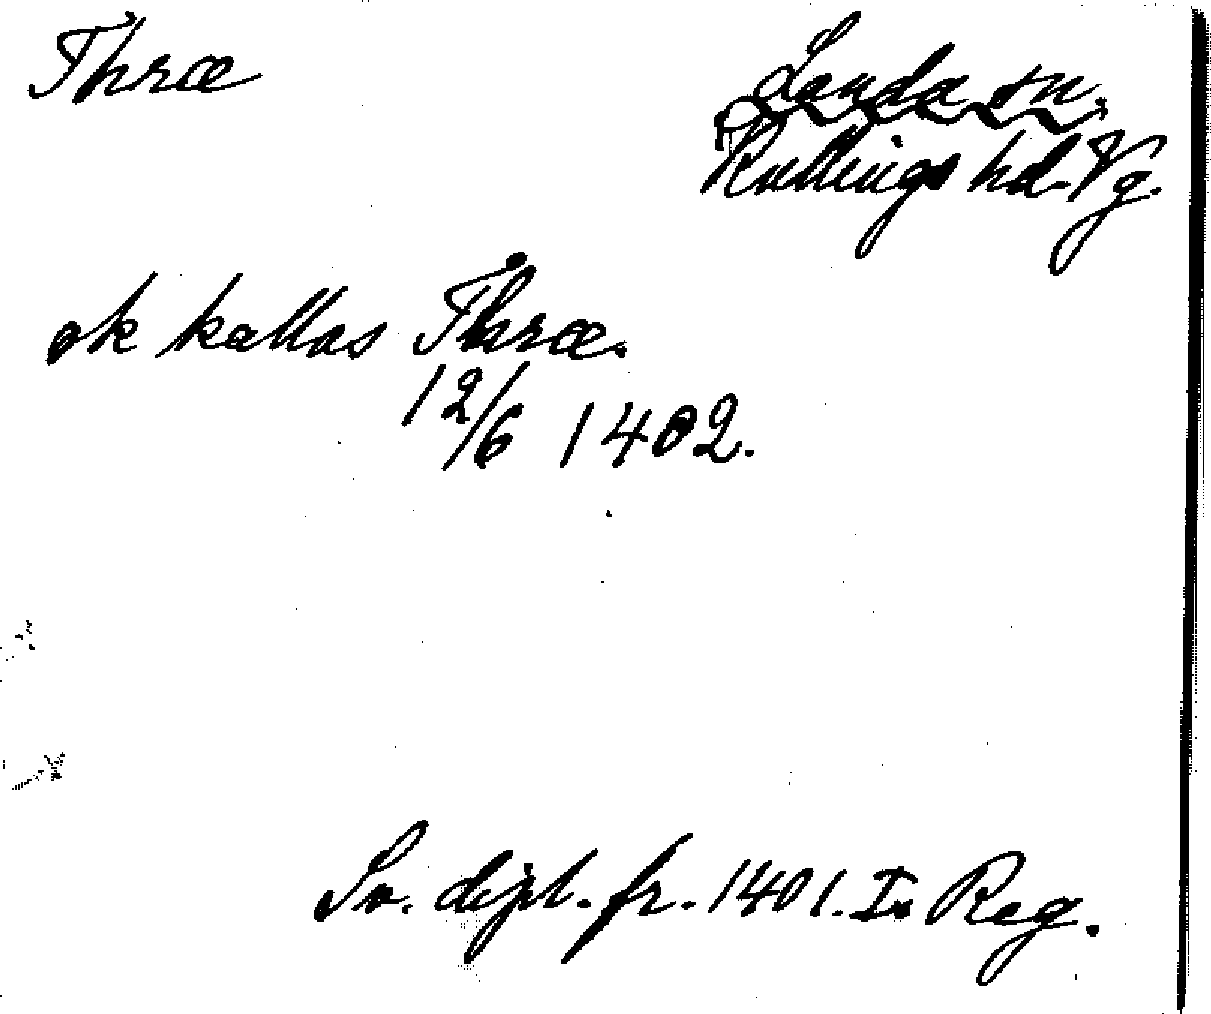 Thræ
Landa sn.
Kullings hd. Vg.
ok kallas Thræ.
12/6 1402.
Sv. dipl. fr. 1401. I. Reg.